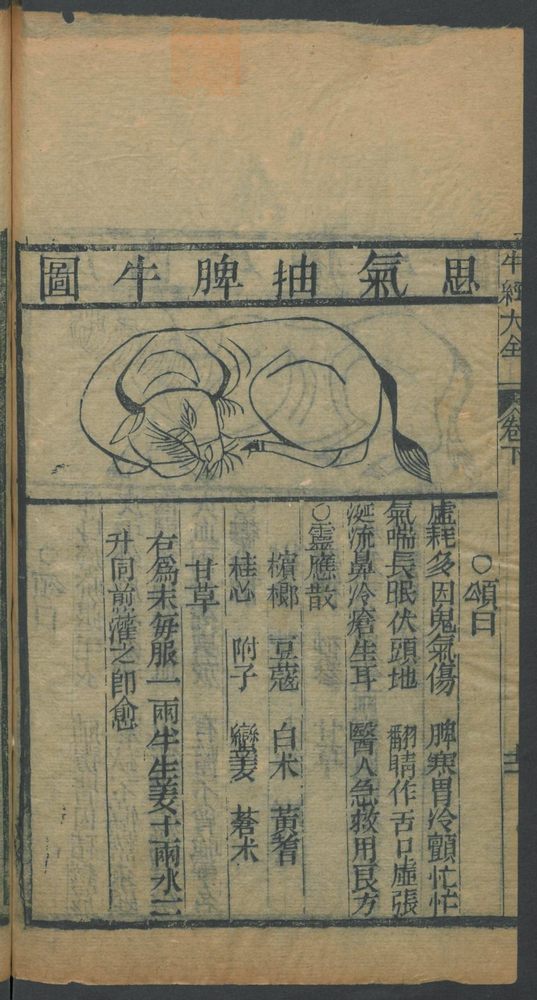 牛經大全 卷下
思氣抽脾牛圖
○頌曰
虛耗多因鬼氣傷 脾寒胃冷顫忙忙
氣喘長眠伏頭地 翻睛作舌口虛張
涎流鼻冷瘡生耳 醫人急救用良方
○靈應散
檳榔 豆蔻 白术 黃耆
桂心 附子 姜 蒼术
甘草
右爲末每服一兩半生姜十兩水二
升同煎灌之即愈